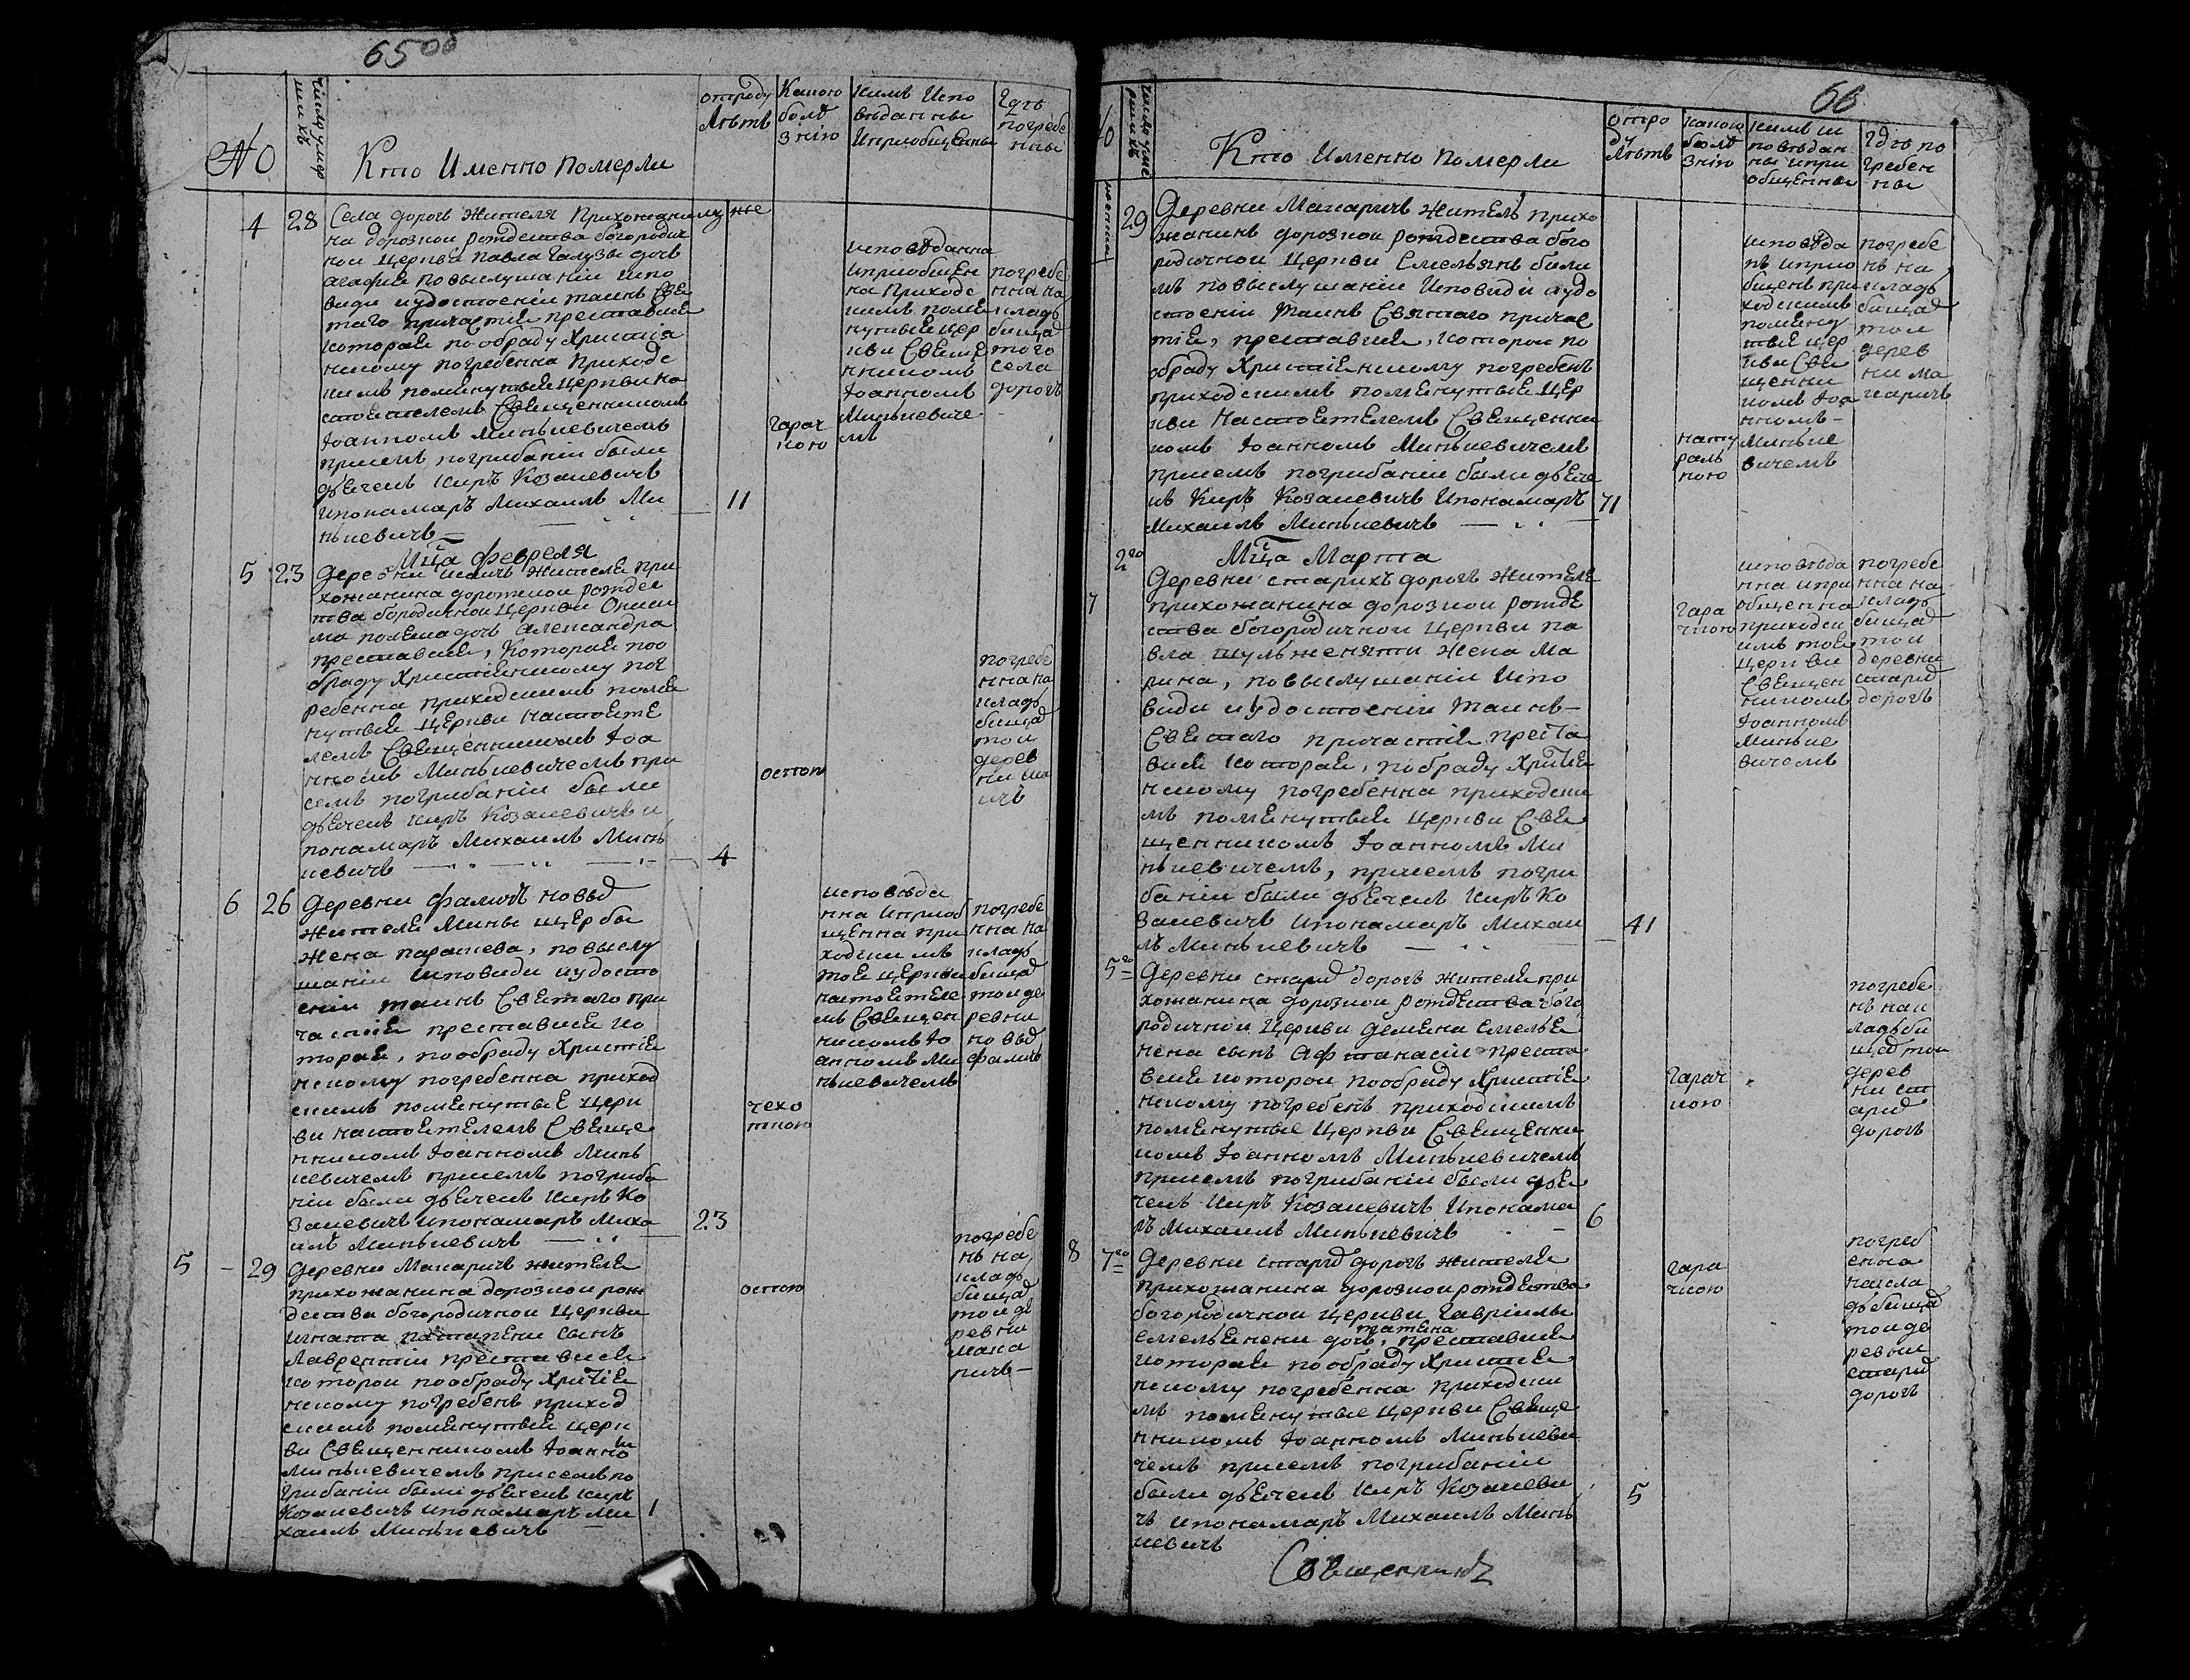 65 об
№
число умер
шихъ
Кто Именно померли
отроду
Лѣтъ
Какою
болѣ
знію
кимъ Испо
вѣданны
Иприобщенны
Гдѣ
погребе
нны
муж
жен
4
28
Села дорогъ жителя Прихожани
на дорозкои рождества богородич
нои Церкви Павла Галузы дочь
агафие повыслушаніи испо
види иудостоеніи таинъ Све
таго причастие преставшие
которае пообраду Христіа
нскому погребенна Приходс
кимъ поменутыие Церкви на
стоетелемъ Священникомъ
Іоанномъ Минкиевичемъ
присемъ погрибаніи были
дьечекъ киръ Козакевичъ
ипонамаръ Михаилъ Ми
нкиевичъ
11
Гарач
кою
исповѣданна
иприобщен
на Приходс
кимъ поме
нутыие цер
кви Свеще
нникомъ
Іоанномъ
Минкиевиче
мъ
погребе
нна на
кладь
бищах
того
села
дорогъ
Мца февреля
5
23
Деревни исаичъ жителе при
хожанина дорожскои рождес
тва богородичнои Церкви Ониси
ма дочь Александра
преставшие, Которае поо
браду Христиенскому пог
ребенна приходскимъ поме
нутыие Церкви настоете
лемъ Священникомъ Іоа
нномъ Минкиевичемъ при
семъ погрибаніи были
дьечекъ киръ Козакевичъ и
понамаръ Михаилъ Минк
иевичъ
4
оспою
погребе
нна на
кладь
бищах
тои
дерев
ни иса
ичъ
6
26
Деревни фаличъ новых
жителе Мины щербы
жена параскева, повыслу
шаніи исповиди иудосто
еніи таинъ Светаго при
частие преставшие ко
торае, пообраду Христие
нскому погребенна приход
скимъ поменутые церк
ви настоетелемъ Свеще
нникомъ Іоанномъ Минк
иевичемъ присемъ погриба
ніи были дьечекъ киръ Ко
закевичъ ипонамаръ Миха
илъ Минкиевичъ
23
чехо
ткою
исповѣда
нна иприоб
щенна при
ходскимъ
тоеи церкви
настоетеле
мъ Свещен
никомъ Іо
анномъ Ми
нкиевичемъ
погребе
нна на
кладь
бищах
тои де
ревни
новых
фаличъ
5
29
Деревни Макаричъ жителе
прихожанина дорозкои рож
дества богородичнои Церкви
игната сынъ
Лаврентіи преставшие
которои пообраду Христіе
нскому погребенъ приход
скимъ поменутыие церк
ви Священникомъ Іоанно
Минкиевичемъ присемъ по
грибаніи были дьечекъ киръ
Козакевичъ ипонамаръ Ми
хаилъ Минкиевичъ
1
оспою
погребе
нъ на
кладь
бищах
тои де
ревни
мака
ричъ
66
№
число уме
ршихъ
Кто Именно померли
отро
ду
Лѣтъ
какою
болѣ
знію
кимъ ис
повѣдан
ны ипри
общенны
Гдѣ по
гребен
ны
29
Деревни Макаричъ житель прихо
жанинъ дорозкои рождества бого
родичнои Церкви Емельянъ
повыслушаніи Исповиди иудо
стоеніи таинъ Святаго причас
тіе, преставшие, которои по
обраду Христіенскому погребенъ
приходскимъ поменутыие Цер
кви Настоетелемъ Священни
комъ Іоанномъ Минкиевичемъ
присемъ погрибаніи были дьече
къ Киръ Козакевичъ Ипонамаръ
Михаилъ Минкиевичъ
71
нату
раль
ною
исповѣда
нъ иприо
бщенъ при
ходскимъ
поменну
тые цер
кви Све
щенни
комъ Іоа
нномъ
Минкие
вичемъ
погребе
нъ на
кладь
бищах
тои
дерев
ни ма
каричъ
Мца Марта
7
2го
Деревни старихъ дорогъ жителе
прихожанина дорозкои рожде
ства богородичнои Церкви па
вла жена Ма
рина, повыслушаніи Испо
види иудостоеніи таинъ
Светаго причастіе преста
вшие которае, пообраду Христіе
нскому погребенна приходски
мъ поменутыие Церкви Све
щенникомъ Іоанномъ Ми
нкиевичемъ, присемъ погри
баніи были дьечекъ киръ Ко
закевичъ ипонамаръ Михаи
лъ Минкиевичъ
41
Гара
чкою
исповѣда
нна ипри
общенна
приходск
имъ тоеи
церкви
Свещен
никомъ
Іоанномъ
Минкие
вичемъ
погребе
нна на
кладь
бищах
тои
деревни
старих
дорогъ
5го
Деревни старих дорогъ жителе при
хожанина дорозкои рождества бого
родичнои Церкви демена емелье
нена сынъ Афтанасіи преста
вшие которои пообраду Христіе
нскому погребенъ приходскимъ
поменутые Церкви Священни
комъ Іоанномъ Минкиевичемъ
присемъ погрибаніи были дье
чекъ киръ Козакевичъ Ипонама
ръ Михаилъ Минкиевичъ
6
Гарач
кою
погребе
нъ на к
ладьби
щах тои
дерев
ни ст
арих
дорогъ
8
7го
Деревни старих дорогъ жителе
прихожанина дорозкои рождества
богородичнои церкви Гавріилы
татена
емельенени дочь, преставшие
которае пообраду Христие
нскому погребенна приходски
мъ поменутые Церкви Свеще
нникомъ Іоанномъ Минкиеви
чемъ присемъ погрибаніи
были дьечекъ киръ Козакеви
чъ ипонамаръ Михаилъ Минк
иевичъ
5
Гара
чкою
погреб
енна
на кла
дьбищах
тои де
ревни
старих
дорогъ
Священникъ